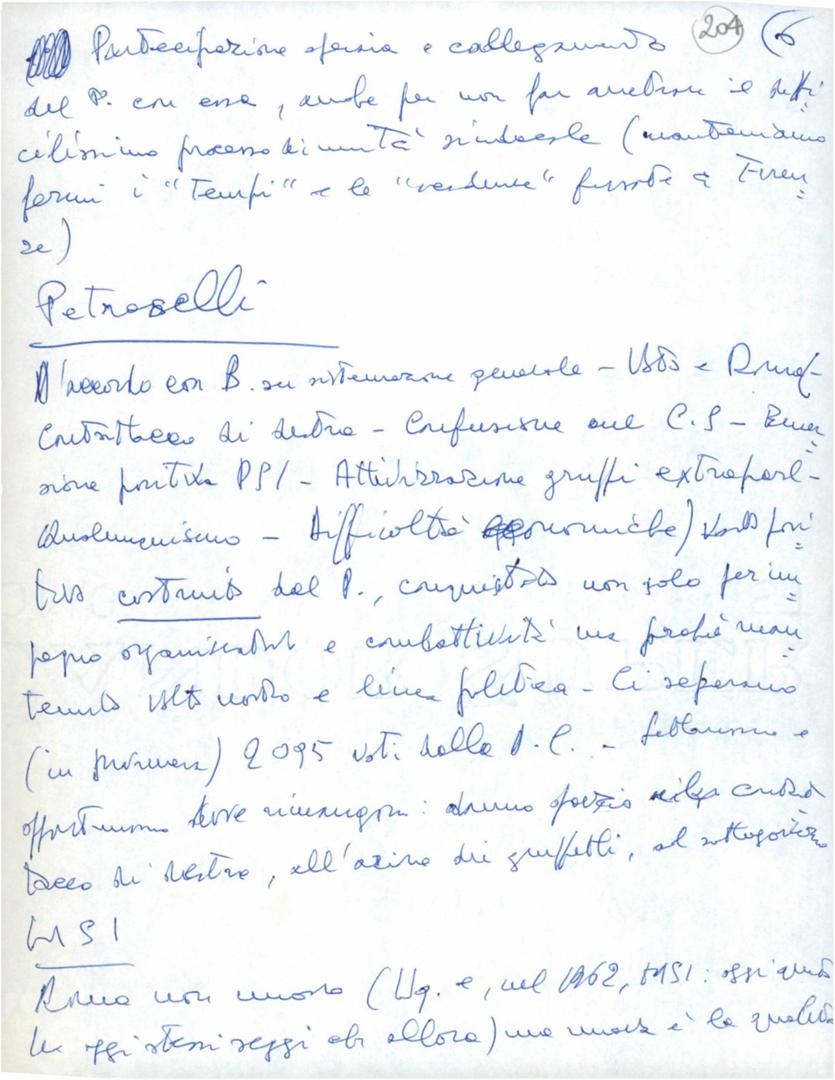 204 (6
Partecipazione operaia e collegamento
del P. con essa, anche per non far arretrare il diffi=
cilissimo processo di unità sindacale (manteniamo
fermi i "tempi" e le "scadenze" fissate a Firen=
ze)
Petroselli
D'accordo con B. su sistemazione generale - Voto e
Contrattacco di destra - Confusione sul C.S -
sione positiva PSI - Attivizzazione gruppi extraparl-
Qualunquismo - difficoltà economiche) Voto posi=
tivo costruito dal P., conquistato non solo per im=
pegno organizzativo e combattività ma perché man=
tenuto volto nostro e linea politica - Ci separano
(in provincia) 2095 voti dalla D.C. - Settarismo e
opportunismo dove rimangono: danno spazio
tacco di destra, all'azione dei gruppetti, al sottogoverno
MSI
Roma non nuova (Uq. e, nel 1962, MSI: oggi
oggi stessi seggi di allora) ma nuova è la qualità